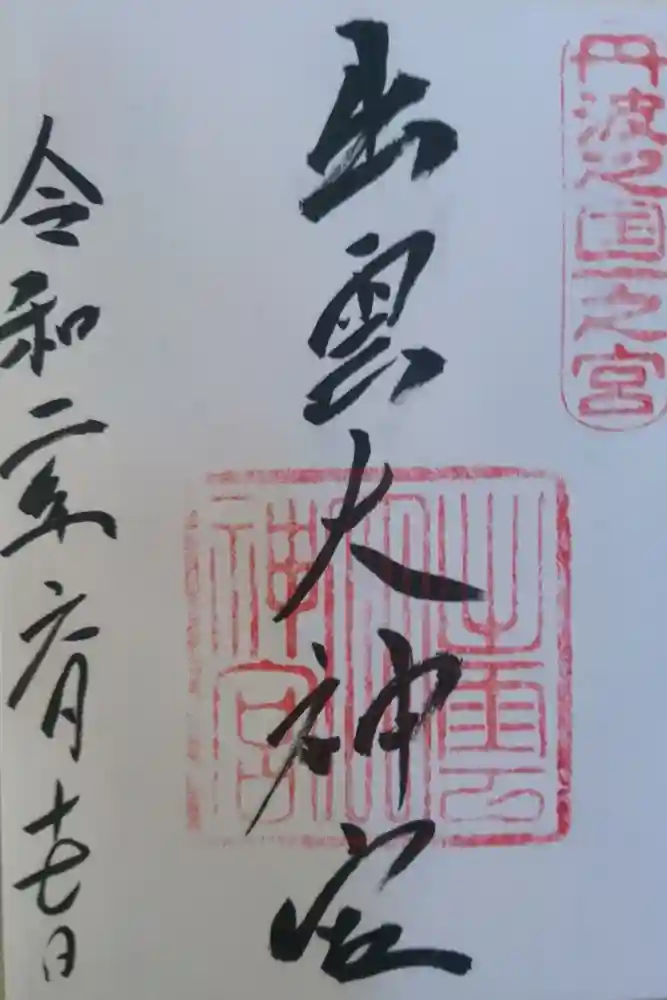 丹波之国一之宮
出雲大神宮
出雲大神宮
令和二年六月十七日